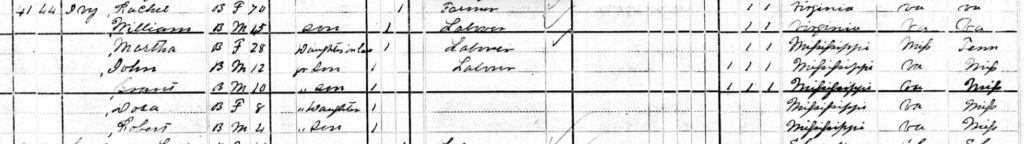 41 44 Ivy Rachel B F 70 1 Farmer 1 1 Virginia Va Va
William B M 45 Son 1 Laborer 1 1 Virginia Va Va
Martha B F 28 Daughter in law 1 Laborer 1 1 Mississippi Miss Tenn
John B M 12 gr Son 1 Laborer 1 1 1 Mississippi Va Miss
Grant B M 10 " Son 1 1 1 1 Mississippi Va Miss
Dora B F 8 " Daughter 1 Mississippi Va Miss
Robert B M 4 " Son 1 Mississippi Va Miss